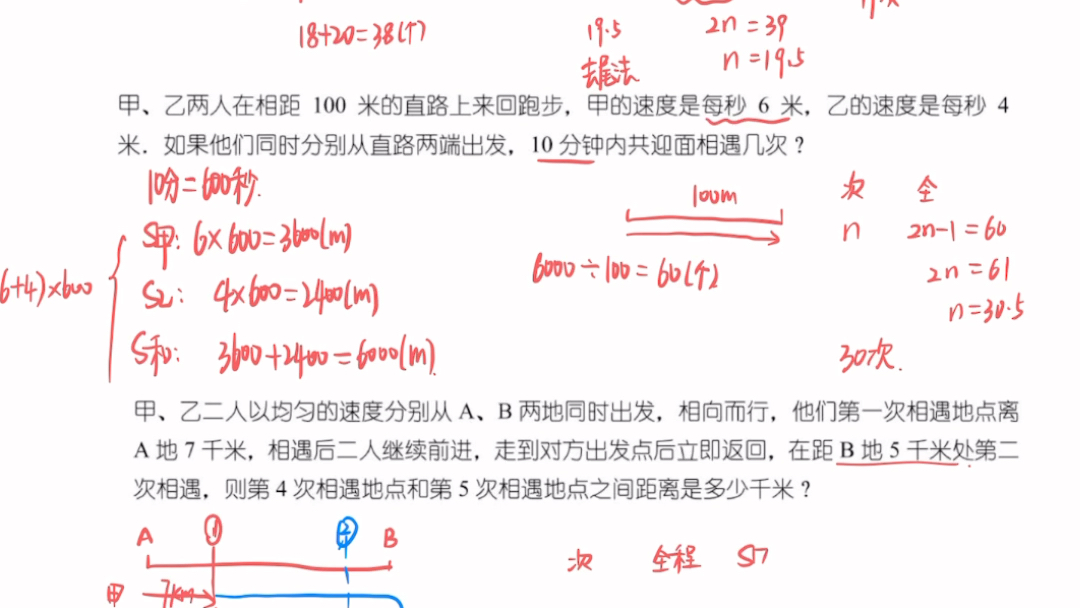 18+20=38(个)
19.5
去尾法
2n=39
n=19.5
甲、乙两人在相距 100 米的直路上来回跑步，甲的速度是每秒 6 米，乙的速度是每秒 4
米．如果他们同时分别从直路两端出发，10 分钟内共迎面相遇几次？
10分=600秒.
S甲: 6×600=3600(m)
6+4)×600
S乙: 4×600=2400(m)
S和: 3600+2400=6000(m)
100m
6000÷100=60(个)
次 全
n 2n-1=60
2n=61
n=30.5
30次.
甲、乙二人以均匀的速度分别从 A、B 两地同时出发，相向而行，他们第一次相遇地点离
A 地 7 千米，相遇后二人继续前进，走到对方出发点后立即返回，在距 B 地 5 千米处第二
次相遇，则第 4 次相遇地点和第 5 次相遇地点之间距离是多少千米？
A ① B
甲 7km
次 全程 S甲